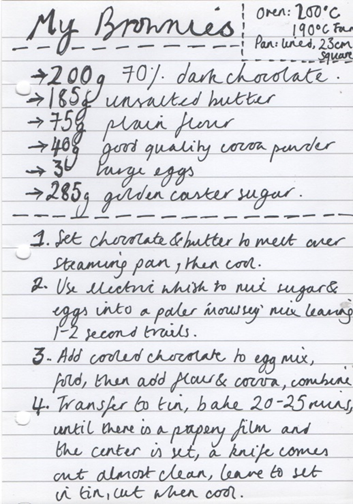 My Brownies
Oven: 200°C
190°C Fan
Pan: lined, 23cm
square
→ 200g 70% dark chocolate.
→ 185g unsalted butter
→ 75g plain flour
→ 40g good quality cocoa powder
→ 3 large eggs
→ 285g golden caster sugar.
1. Set chocolate & butter to melt over
steaming pan, then cool.
2. Use electric whisk to mix sugar &
eggs into a paler moussey mix leaving
1-2 second trails.
3. Add cooled chocolate to egg mix,
fold, then add flour & cocoa, combine
4. Transfer to tin, bake 20-25 mins,
until there is a papery film and
the center is set, a knife comes
out almost clean, leave to set
in tin, cut when cool.